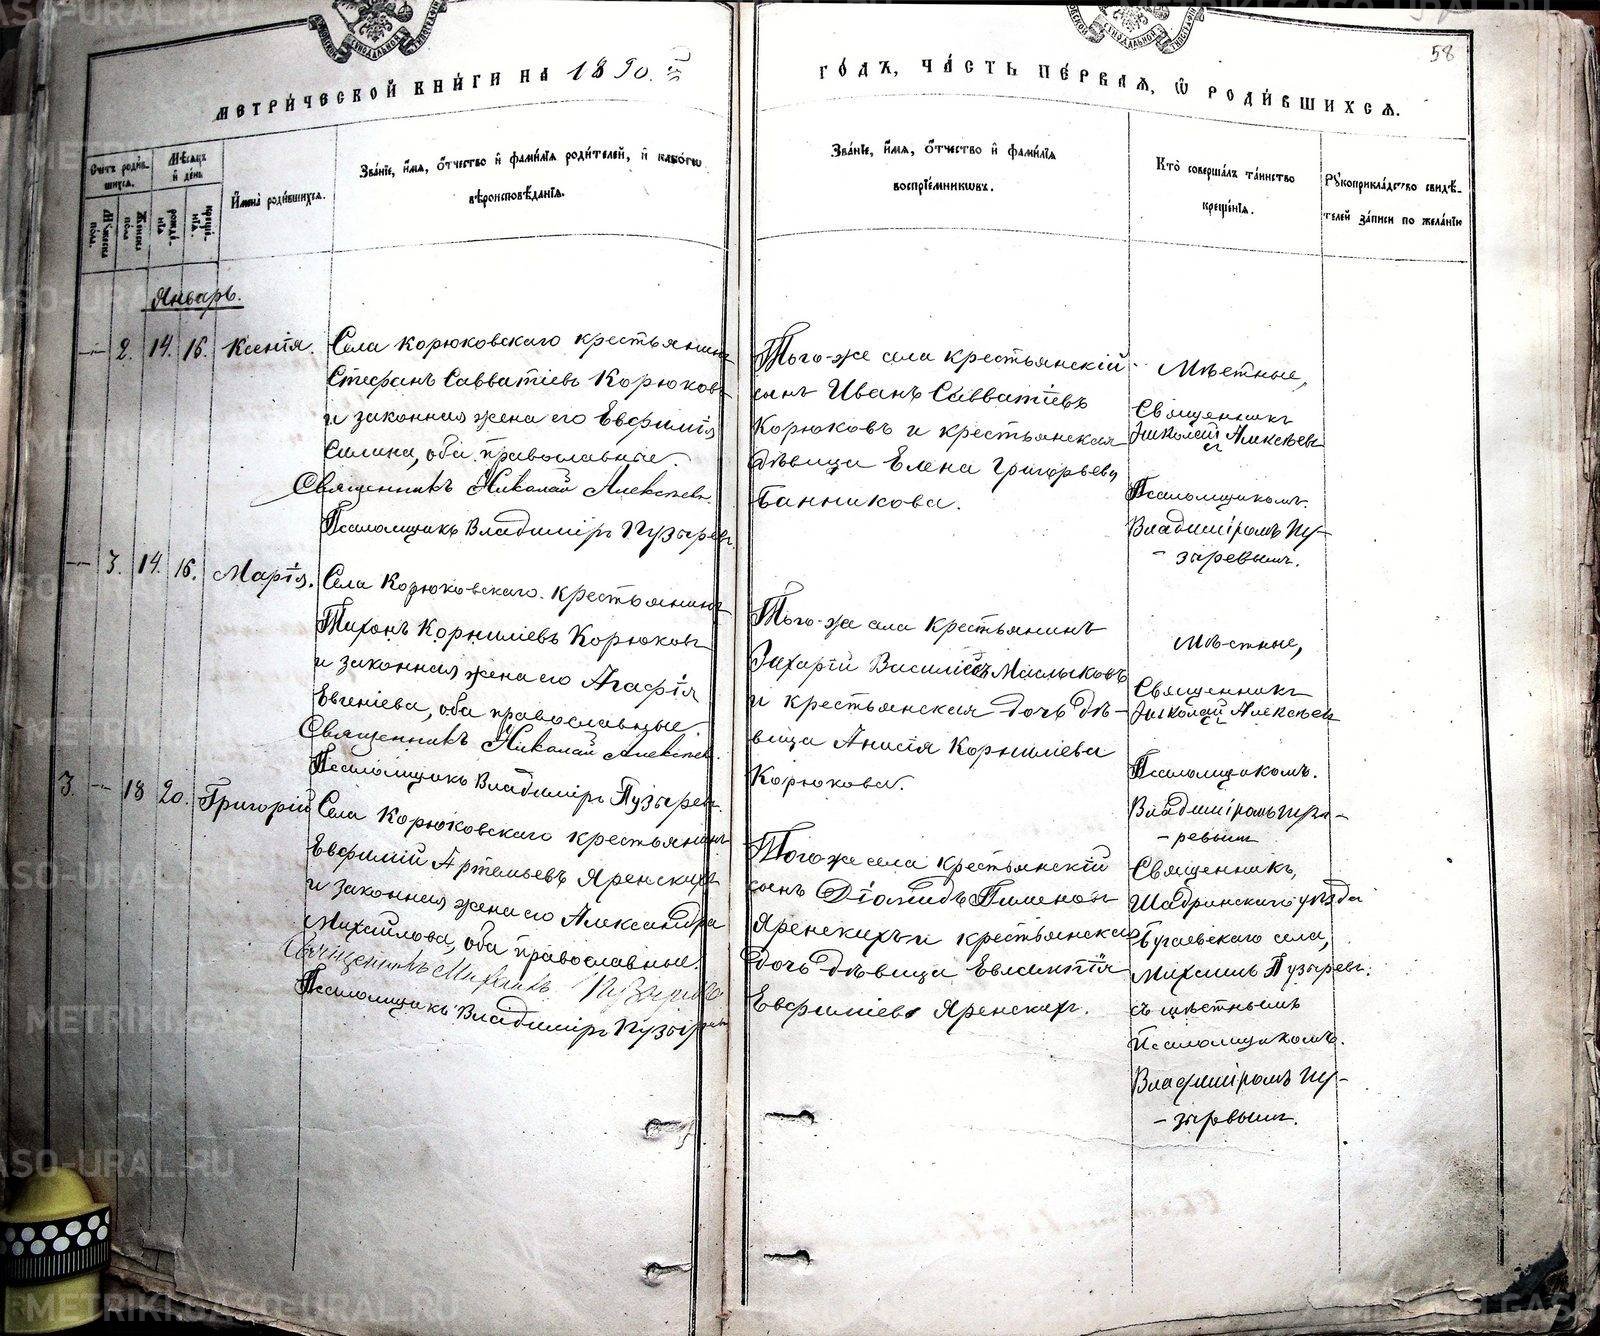 58
МЕТРИ́ЧЕСКОЙ КНИ́ГИ НА 1890.
ГО́ДЪ, ЧА́СТЬ ПЕ́РВАѦ, Ѡ РОДИ́ВШИХСѦ.
Счетъ роди́вшихсѧ.
Мꙋжеска по́ла.
Женска по́ла
Мѣсѧцъ и де́нь
рожде́нїѧ
креще́нїѧ.
Имена̀ роди́вшихсѧ.
Зва́нїе, и́мѧ, ѻ҆́тчество и҆ фами́лїѧ роди́телей, и҆ како́гѡ
вѣроисповѣ́данїѧ.
Зва́нїе, и́мѧ, ѻ҆́тчество и҆ фами́лїѧ
воспрїе́мникѡвъ.
Кто̀ соверша́лъ та́инство
креще́нїѧ.
Рꙋкоприкла́дство свидѣ́-
телей за́писи по жела́нїю
Январь.
— 2. 14. 16. Ксенія.
Села Корюковскаго крестьянинъ
Стефанъ Савватіевъ Корюковъ
и законная жена его Евфимія
Силина, оба православные.
Священникъ Николай Алексѣевъ.
Псаломщикъ Владиміръ Пузыревъ.
Того-же села крестьянскій
сынъ Иванъ Савватіевъ
Корюковъ и крестьянская
дѣвица Елена Григорьева
Банникова.
Мѣстные,
Священникъ
Николай Алексѣевъ
Псаломщикомъ
Владиміромъ Пу-
- зыревымъ.
— 3. 14. 16. Марія.
Села Корюковскаго крестьянинъ
Тихонъ Корниліевъ Корюковъ
и законная жена его Агафія
Евгеніева, оба православные.
Священникъ Николай Алексѣевъ.
Псаломщикъ Владиміръ Пузыревъ.
Того-же села крестьянинъ
Захарій Василіевъ Маслыковъ
и крестьянская дочь дѣ-
вица Анисія Корниліева
Корюкова.
Мѣстные,
Священникъ
Николай Алексѣевъ
Псаломщикомъ.
Владиміромъ Пузы-
- ревымъ
3. — 18 20. Григорій
Села Корюковскаго крестьянинъ
Евфимій Артемьевъ Яренскихъ
и законная жена его Александра
Михайлова, оба православные.
Священникъ Михаилъ Пузыревъ
Псаломщикъ Владиміръ Пузыревъ
Того-же села крестьянскій
сынъ Діомидъ Пименовъ
Яренскихъ и крестьянская
дочь дѣвица Евлампія
Евфиміева Яренскихъ.
Священникъ,
Шадринскаго уѣзда
Бугаевскаго села,
Михаилъ Пузыревъ.
съ мѣстнымъ
Псаломщикомъ.
Владиміромъ Пу-
- зыревымъ.
METRIKI.GASO-URAL.RU